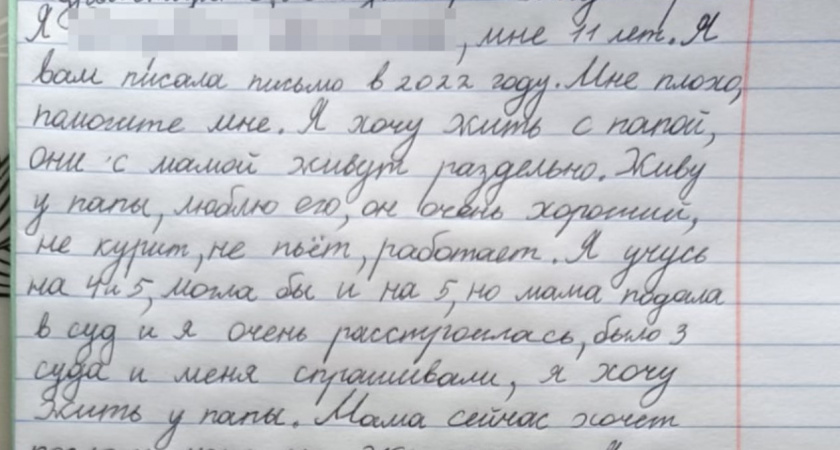 Я , мне 11 лет. Я
вам писала письмо в 2022 году. Мне плохо,
помогите мне. Я хочу жить с папой,
они с мамой живут раздельно. Живу
у папы, люблю его, он очень хороший,
не курит, не пьёт, работает. Я учусь
на 4 и 5, могла бы и на 5, но мама подала
в суд и я очень расстроилась, было 3
суда и меня спрашивали, я хочу
жить у папы. Мама сейчас хочет